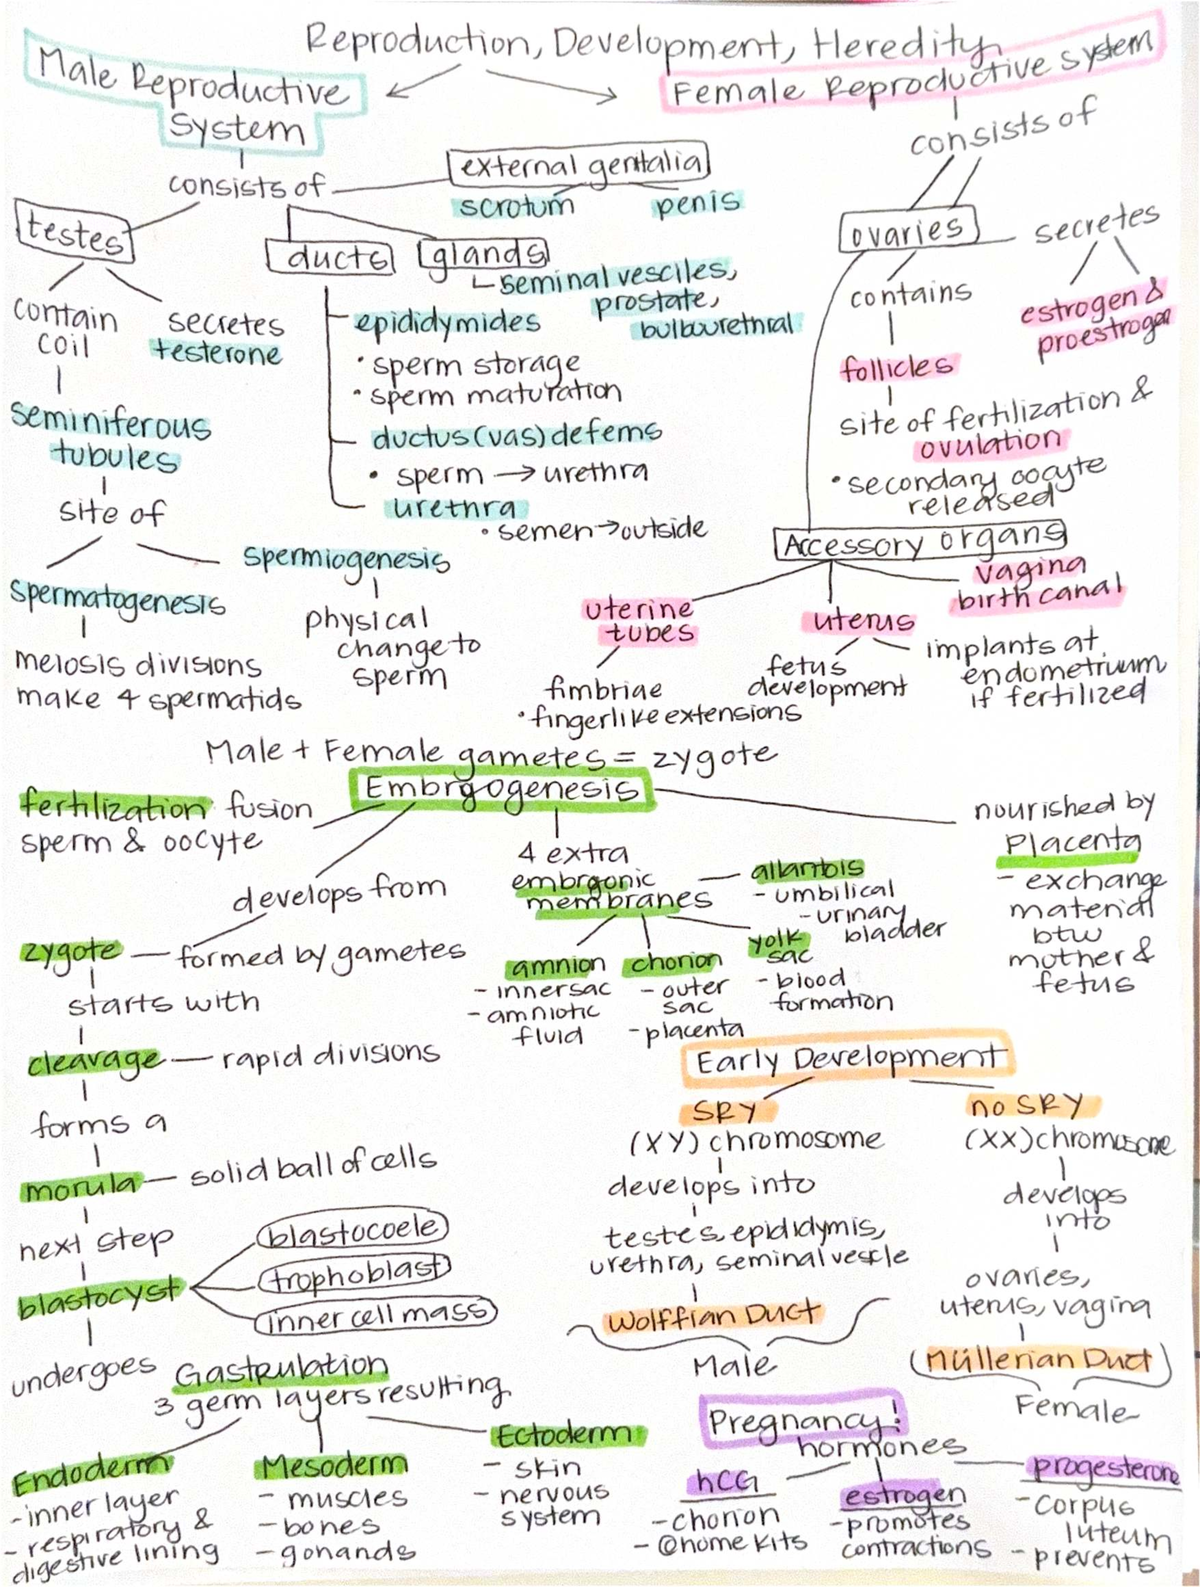 Reproduction, Development, Heredity
Male Reproductive
System
consists of
testes
contain
coil
seminiferous
tubules
site of
spermatogenesis
meiosis divisions
make 4 spermatids
spermiogenesis
physical
change to
sperm
secretes
testerone
ducts
epididymides
• sperm storage
• sperm maturation
ductus (vas) defems
• sperm → urethra
urethra
• semen → outside
glands
seminal vesciles,
prostate,
bulbourethral
external genitalia
scrotum
penis
Female Reproductive system
consists of
ovaries
secretes
estrogen &
proestrogen
contains
follicles
site of fertilization &
ovulation
• secondary oocyte
released
Accessory organs
uterine
tubes
fimbriae
• fingerlike extensions
uterus
fetus
development
implants at
endometruum
if fertilized
vagina
birth canal
Male + Female gametes = zygote
Embrgogenesis
fertilization fusion
sperm & oocyte
develops from
zygote — formed by gametes
starts with
cleavage — rapid divisions
forms a
morula — solid ball of cells
next step
blastocyst
blastocoele
trophoblast
inner cell mass
undergoes Gastrulation
3 germ layers resulting
Endoderm
- inner layer
- respiratory &
digestive lining
Mesoderm
- muscles
- bones
- gonands
Ectoderm
- skin
- nervous
system
4 extra
embrgonic
membranes
amnion
- inner sac
- amniotic
fluid
chorion
- outer
sac
- placenta
yolk
sac
- blood
formation
allantois
- umbilical
- urinary
bladder
nourished by
Placenta
- exchange
material
btw
mother &
fetus
Early Development
SRY
(XY) chromosome
develops into
testes, epididymis,
urethra, seminal vescle
Wolffian Duct
Male
no SRY
(XX) chromosome
develops
into
ovaries,
uterus, vagina
(Müllerian Duct)
Female
Pregnancy!
hormones
hCG
- chorion
- @home kits
estrogen
- promotes
contractions
progesterone
- corpus
luteum
- prevents